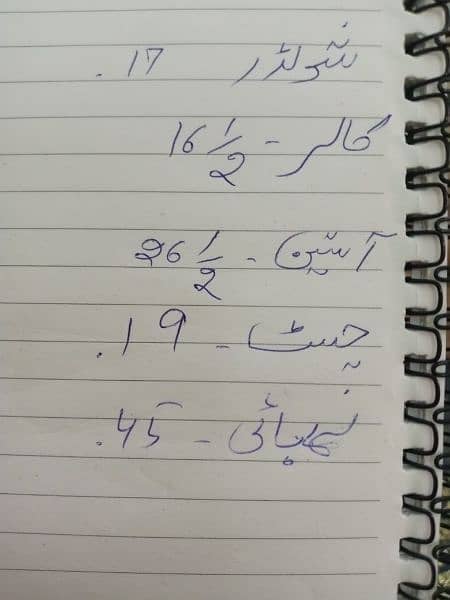 شولڈر 17.
کالر - 16 1/2
آستین - 26 1/2
چسٹ - 19.
لمبائی - 45.